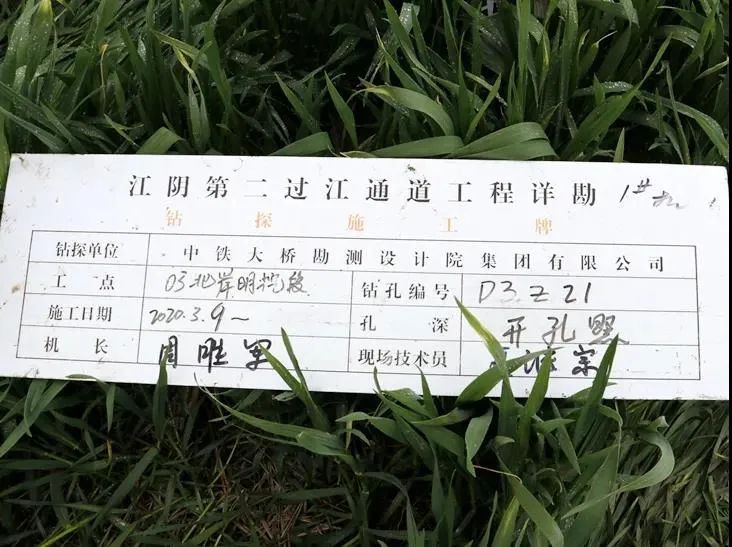 江阴第二过江通道工程详勘 1#机
钻探施工牌
钻探单位 中铁大桥勘测设计院集团有限公司
工点 D3北岸明挖段 钻孔编号 D3.Z21
施工日期 2020.3.9~ 孔深 开孔照
机长 周胜军 现场技术员